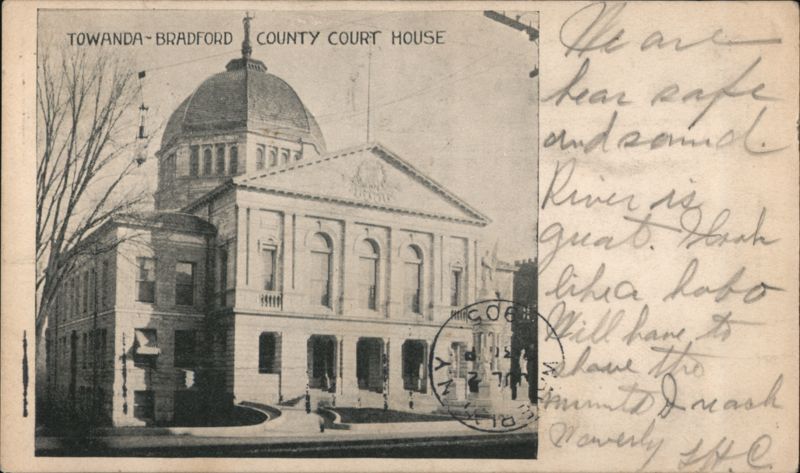 TOWANDA-BRADFORD COUNTY COURT HOUSE
We are
hear safe
and sound.
River is
great. I look
like a hobo
Will have to
shave the
minute I reach
Waverly
1905
N.Y.